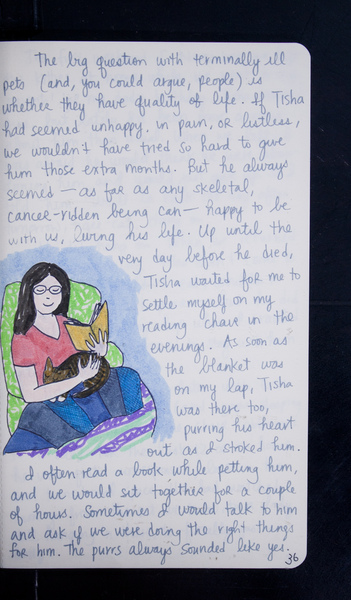 The big question with terminally ill
pets (and, you could argue, people) is
whether they have quality of life. If Tisha
had seemed unhappy, in pain, or listless,
we wouldn't have tried so hard to give
him those extra months. But he always
seemed — as far as any skeletal,
cancer-ridden being can — happy to be
with us, living his life. Up until the
very day before he died,
Tisha waited for me to
settle myself on my
reading chair in the
evenings. As soon as
the blanket was
on my lap, Tisha
was there too,
purring his heart
out as I stroked him.
I often read a book while petting him,
and we would sit together for a couple
of hours. Sometimes I would talk to him
and ask if we were doing the right things
for him. The purrs always sounded like yes.
36